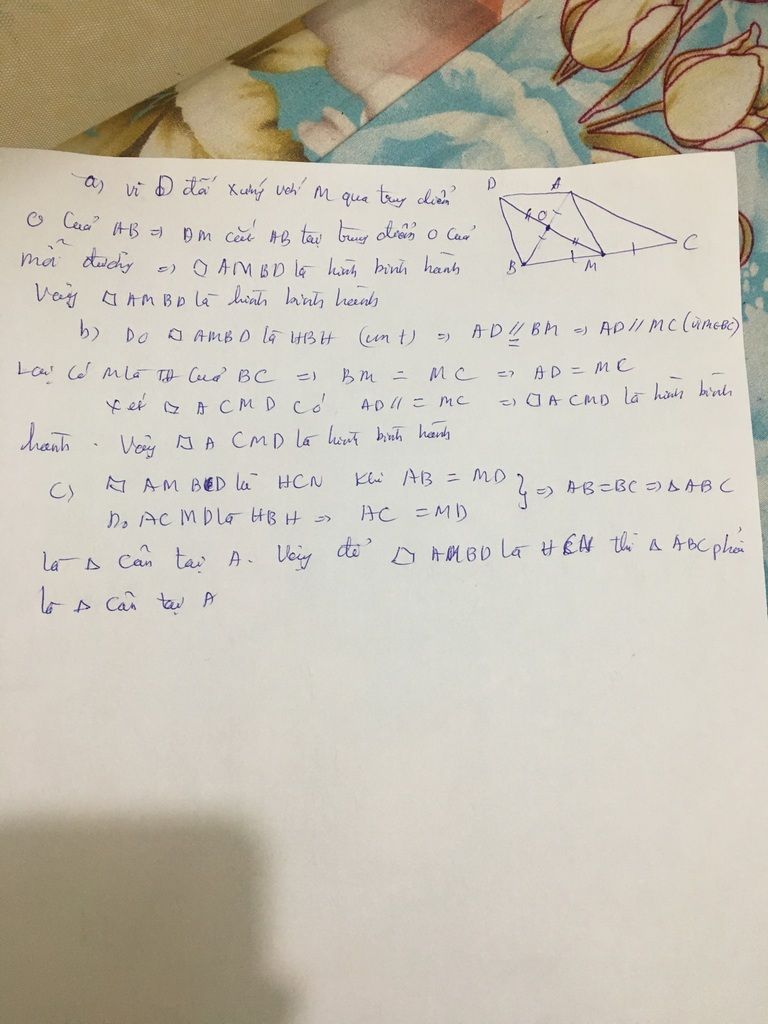 a) Vì D đối xứng với M qua trung điểm
O của AB => DM cắt AB tại trung điểm O của
mỗi đường => □ AMBD là hình bình hành
Vậy □ AMBD là hình bình hành
b) Do □ AMBD là HBH (cmt) => AD // BM => AD // MC (vì M∈BC)
Lại có M là TĐ của BC => BM = MC => AD = MC
Xét □ ACMD có AD // = MC => □ ACMD là hình bình
hành. Vậy □ ACMD là hình bình hành
c) □ AMBD là HCN khi AB = MD } => AB = BC => Δ ABC
Do ACMD là HBH => AC = MD
là Δ cân tại A. Vậy để □ AMBD là HCN thì Δ ABC phải
là Δ cân tại A
D A
O
B M C